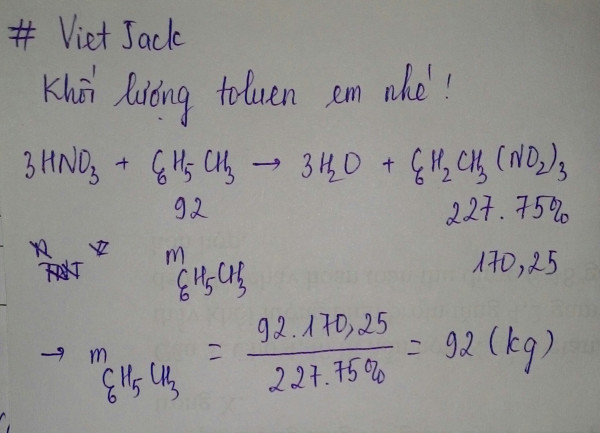 # Viet Jack
Khối lượng toluen em nhé!
3HNO3 + C6H5CH3 → 3H2O + C6H2CH3(NO2)3
92 227.75%
m C6H5CH3 170,25
→ m C6H5CH3 = 92.170,25 / 227.75% = 92 (kg)